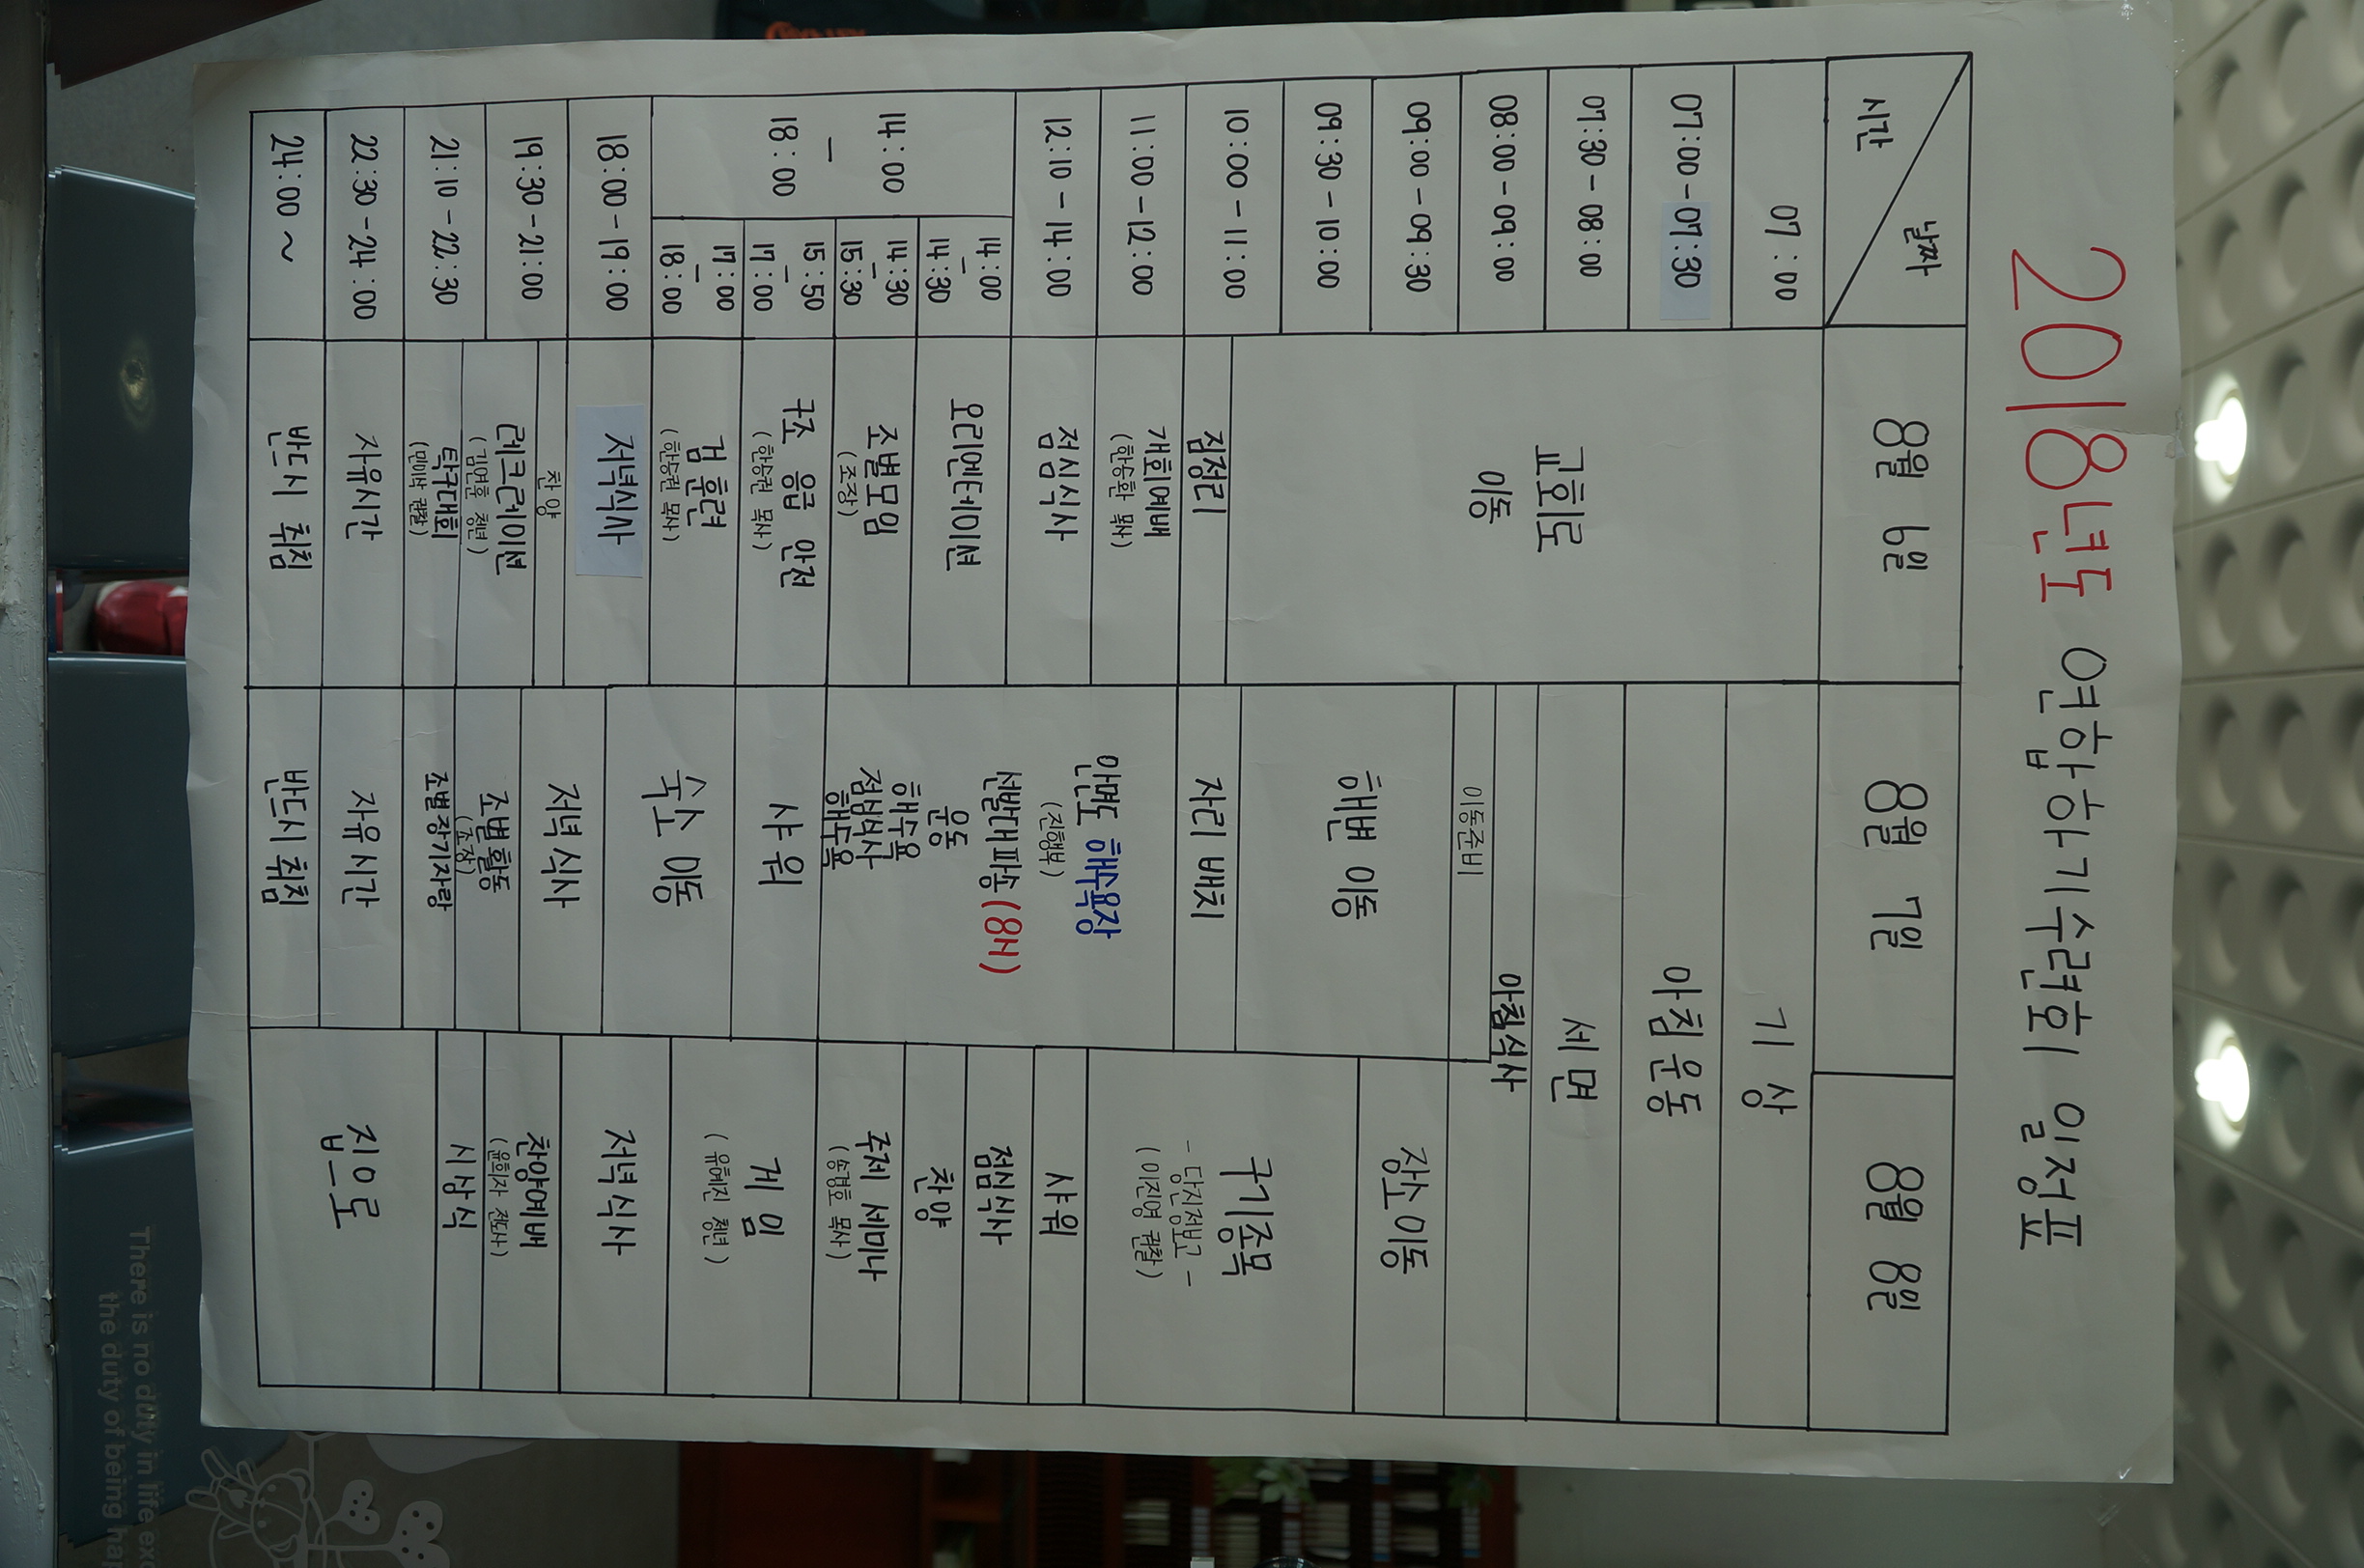 2018년도 연합하기수련회 일정표
시간 날짜 8월 6일 8월 7일 8월 8일
07:00 기상
07:00-07:30 아침운동
07:30-08:00 세면
08:00-09:00 아침식사
09:00-09:30
09:30-10:00
10:00-11:00
11:00-12:00
12:10-14:00
14:00
-
18:00
14:00
-
14:30
14:30
-
15:30
15:50
-
17:00
17:00
-
18:00
18:00-19:00
19:30-21:00
21:10-22:30
22:30-24:00
24:00 ~
교회로
이동
짐정리
개회예배
(한승환 목사)
점심식사
오리엔테이션
조별모임
(조장)
구조 응급 안전
(한승권 목사)
검 훈련
(한승권 목사)
저녁식사
찬양
레크레이션
(김연훈 청년)
탁구대회
자유시간
반드시 취침
이동준비
해변 이동
자리 배치
안면도 해수욕장
(진행부)
선발대파송(8시)
운동
해수욕
점심식사
해수욕
샤워
숙소 이동
저녁식사
조별활동
(조장)
조별장기자랑
자유시간
반드시 취침
장소이동
구기종목
- 당진정보고 -
(이진영 권찰)
샤워
점심식사
찬양
주제 세미나
(송경호 목사)
게임
(유혜진 청년)
저녁식사
찬양예배
(윤희자 전도사)
시상식
집으로
There is no duty in life exc
the duty of being hap